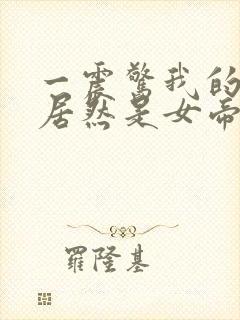 一震驚我的
居然是女帝
羅隆基